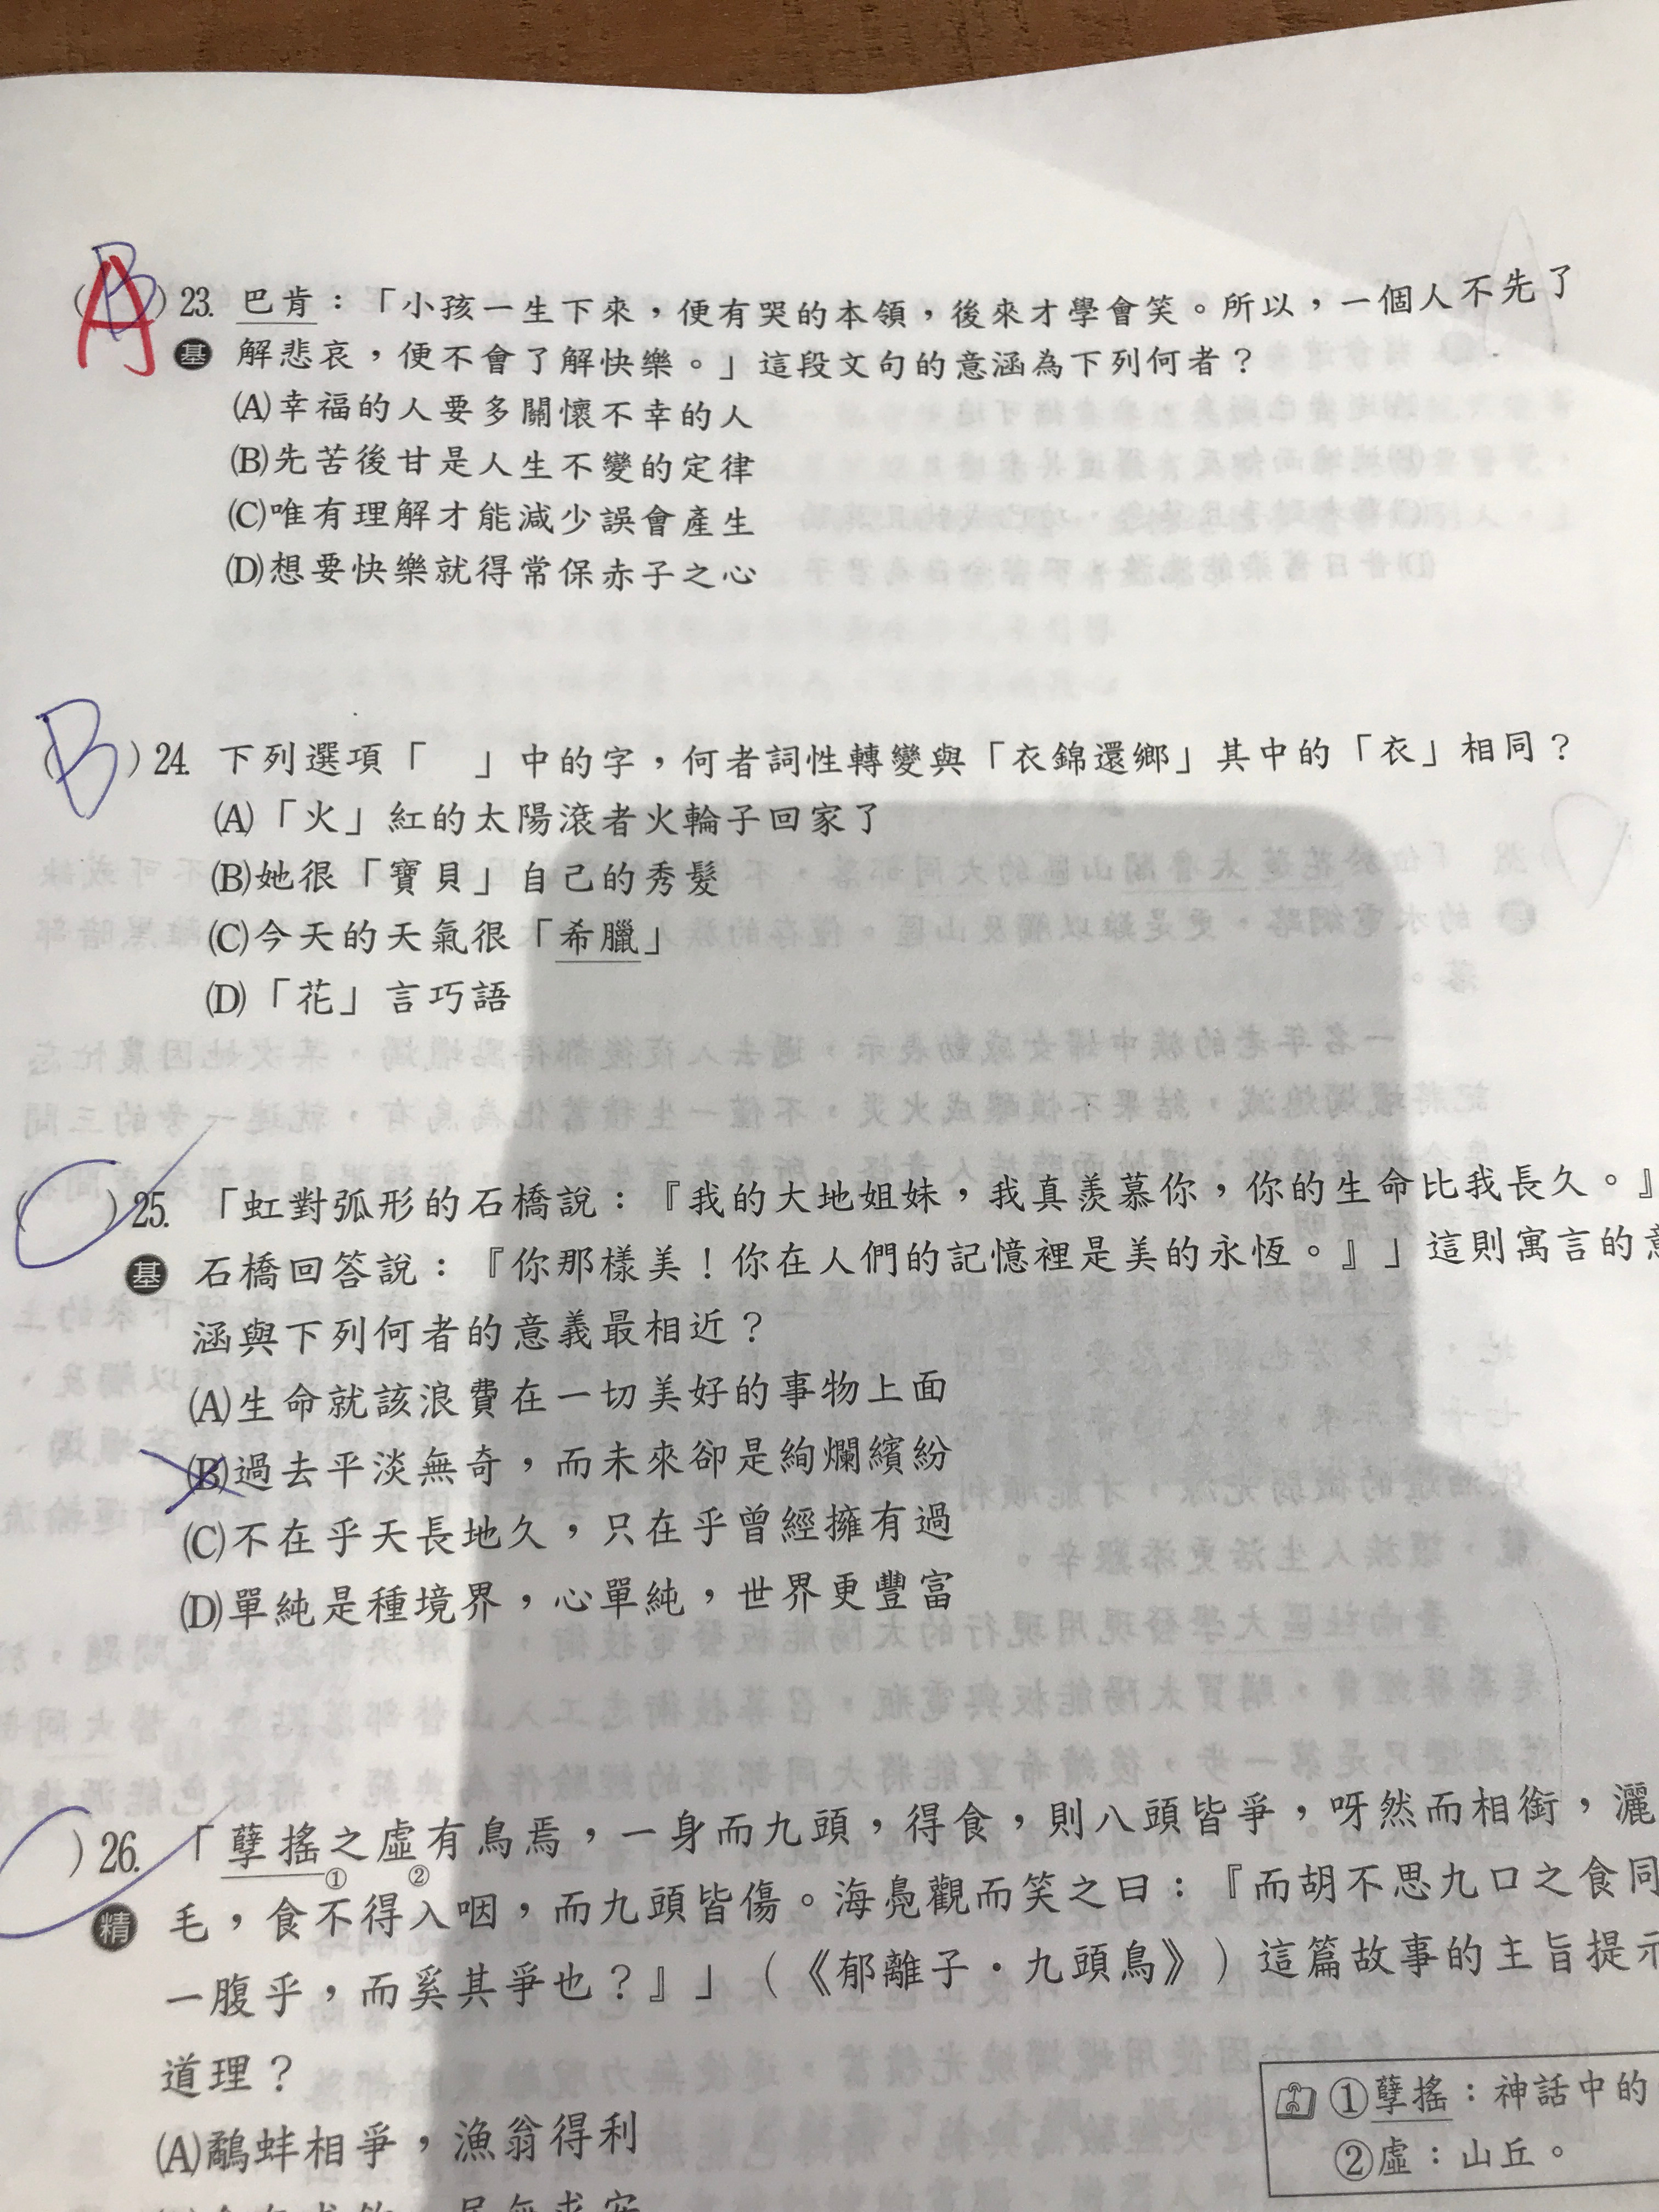 (B) A 23. 巴肯：「小孩一生下來，便有哭的本領，後來才學會笑。所以，一個人不先了
基 解悲哀，便不會了解快樂。」這段文句的意涵為下列何者？
(A)幸福的人要多關懷不幸的人
(B)先苦後甘是人生不變的定律
(C)唯有理解才能減少誤會產生
(D)想要快樂就得常保赤子之心
(B) 24. 下列選項「　」中的字，何者詞性轉變與「衣錦還鄉」其中的「衣」相同？
(A)「火」紅的太陽滾者火輪子回家了
(B)她很「寶貝」自己的秀髮
(C)今天的天氣很「希臘」
(D)「花」言巧語
(C) 25. 「虹對弧形的石橋說：『我的大地姐妹，我真羨慕你，你的生命比我長久。』
基 石橋回答說：『你那樣美！你在人們的記憶裡是美的永恆。』」這則寓言的意
涵與下列何者的意義最相近？
(A)生命就該浪費在一切美好的事物上面
(B)過去平淡無奇，而未來卻是絢爛繽紛
(C)不在乎天長地久，只在乎曾經擁有過
(D)單純是種境界，心單純，世界更豐富
(C) 26. 「孽搖之虛有鳥焉，一身而九頭，得食，則八頭皆爭，呀然而相銜，灑
① ②
精 毛，食不得入咽，而九頭皆傷。海鳧觀而笑之曰：『而胡不思九口之食同
一腹乎，而奚其爭也？』」（《郁離子·九頭鳥》）這篇故事的主旨提示
道理？
①孽搖：神話中的
(A)鷸蚌相爭，漁翁得利
②虛：山丘。